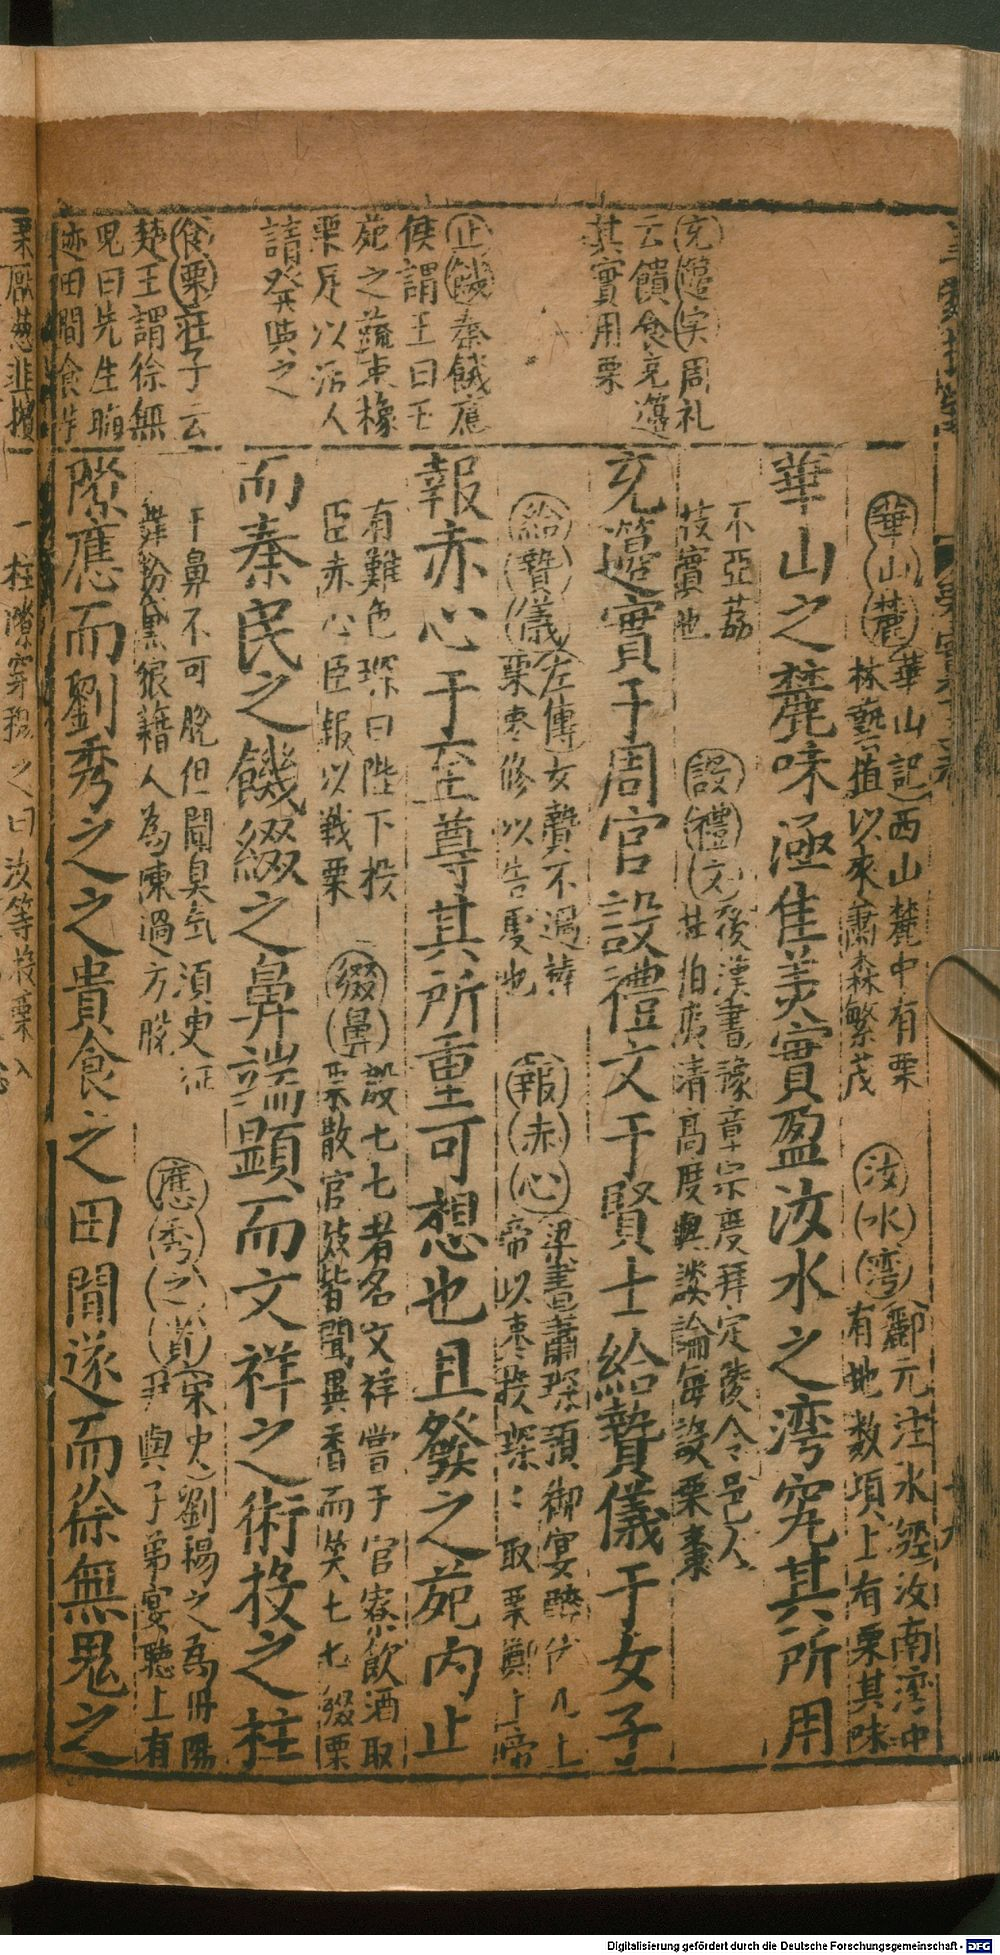 充籩实周礼
云饋食充籩
其實用栗
止饑秦饑應
侯謂王曰王
苑之蔬束橡
栗足以活人
請發與之
食栗莊子云
楚王謂徐無
鬼曰先生
迹田間食芧
栗厭葱韭
華山麓華山記西山麓中有栗
林藝植以來蕭森繁茂
汝水湾酈元注水經汝南湾中
有地数項上有栗其味
華山之麓味極佳美實盈汝水之湾究其所用
不亞荔
芰實也
設禮文後漢書豫章宗度拜定陵令邑人
杜伯夷清高度與談論每設栗棗
充籩實于周官設禮文于賢士給贄儀于女子
給贄儀左傳女贄不過榛
栗枣修以告虔也
報赤心梁書蕭琛預御宴醉伏上
帝以枣投琛〻取栗擲上帝
報赤心于至尊其所重可想也且發之苑内止
有難色琛曰陛下投
臣赤心臣報以戰栗
綴鼻殷七七者名文祥嘗于官寮飲酒取
栗散官妓皆聞異香而笑七七綴栗
而秦民之饑綴之鼻端顕而文祥之術投之柱
于鼻不可脫但聞臭气須臾
舞粉黛狼藉人為陳過方脫
應秀之宋史劉楊之為丹陽
尹與子弟宴聴上有
隙應而劉秀之之貴食之田間遂而徐無鬼之
一柱隙穿穩之曰汝等投栗入
Digitalisierung gefördert durch die Deutsche Forschungsgemeinschaft - DFG